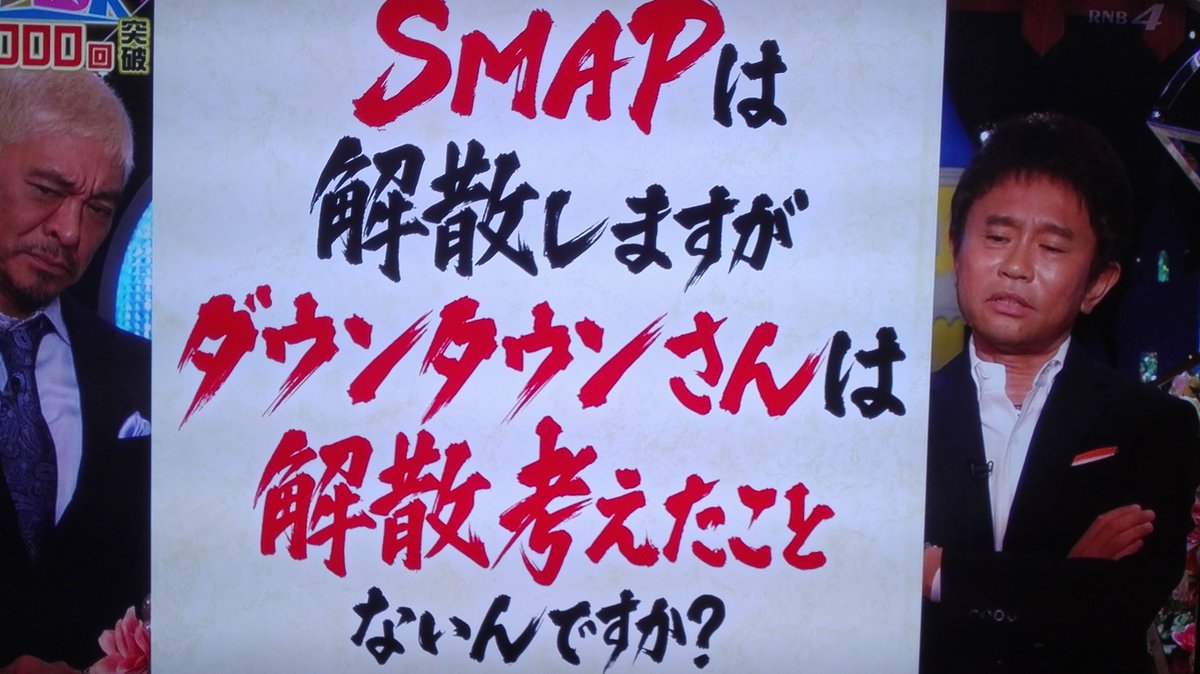 000回
突破
RNB 4
SMAPは
解散しますが
ダウンタウンさんは
解散考えたこと
ないんですか?